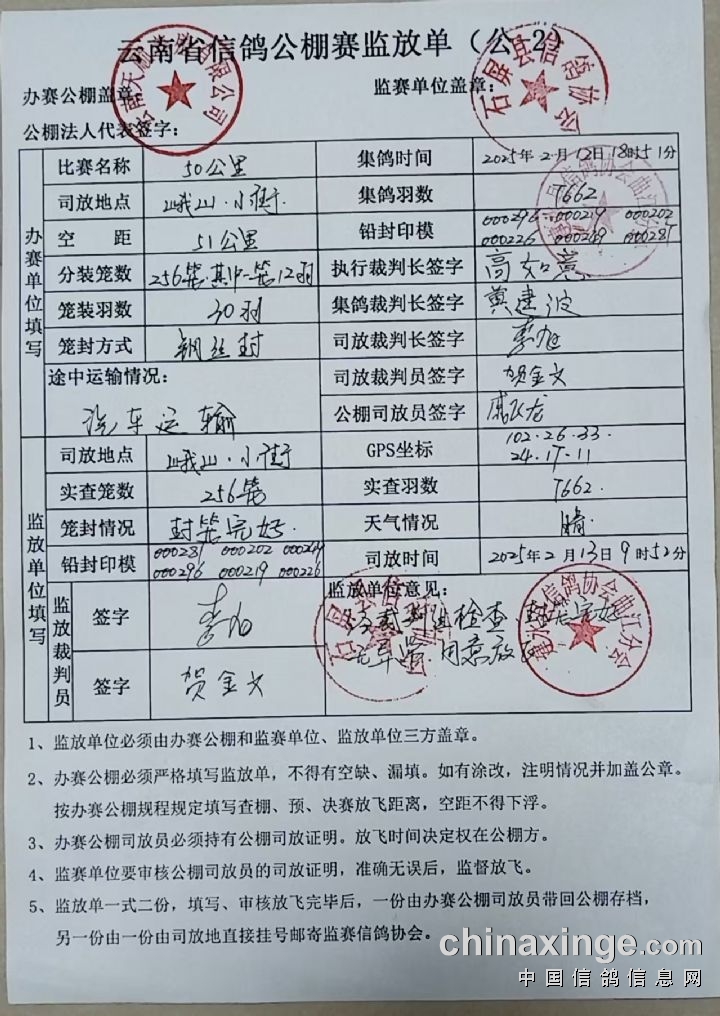 云南省信鸽公棚赛监放单（公-2）
办赛公棚盖章：
监赛单位盖章：
公棚法人代表签字：
办赛单位填写
比赛名称 50公里 集鸽时间 2025年2月12日18时51分
司放地点 峨山·小街 集鸽羽数 7662
空距 51公里 铅封印模 000296 000219 000202
000226 000281
分装笼数 256笼·其中一笼12羽 执行裁判长签字 高如意
笼装羽数 30羽 集鸽裁判长签字 建波
笼封方式 钢丝封 司放裁判长签字 李旭
途中运输情况： 司放裁判员签字 贺金文
汽车运输 公棚司放员签字 飞龙
监放单位填写
司放地点 峨山·小街 GPS坐标 102·26·33
24·17·11
实查笼数 256笼 实查羽数 7662
笼封情况 封笼完好 天气情况 晴
铅封印模 000281 000202
000296 000219 000226
司放时间 2025年2月13日9时52分
监放裁判员
签字 李旭
签字 贺金文
监放单位意见：
检查 完好
同意放
石屏县信鸽协会
曲江分会
1、监放单位必须由办赛公棚和监赛单位、监放单位三方盖章。
2、办赛公棚必须严格填写监放单，不得有空缺、漏填。如有涂改，注明情况并加盖公章。
按办赛公棚规程规定填写查棚、预、决赛放飞距离，空距不得下浮。
3、办赛公棚司放员必须持有公棚司放证明。放飞时间决定权在公棚方。
4、监赛单位要审核公棚司放员的司放证明，准确无误后，监督放飞。
5、监放单一式二份，填写、审核放飞完毕后，一份由办赛公棚司放员带回公棚存档，
另一份由一份由司放地直接挂号邮寄监赛信鸽协会。
chinaxinge.com
中国信鸽信息网